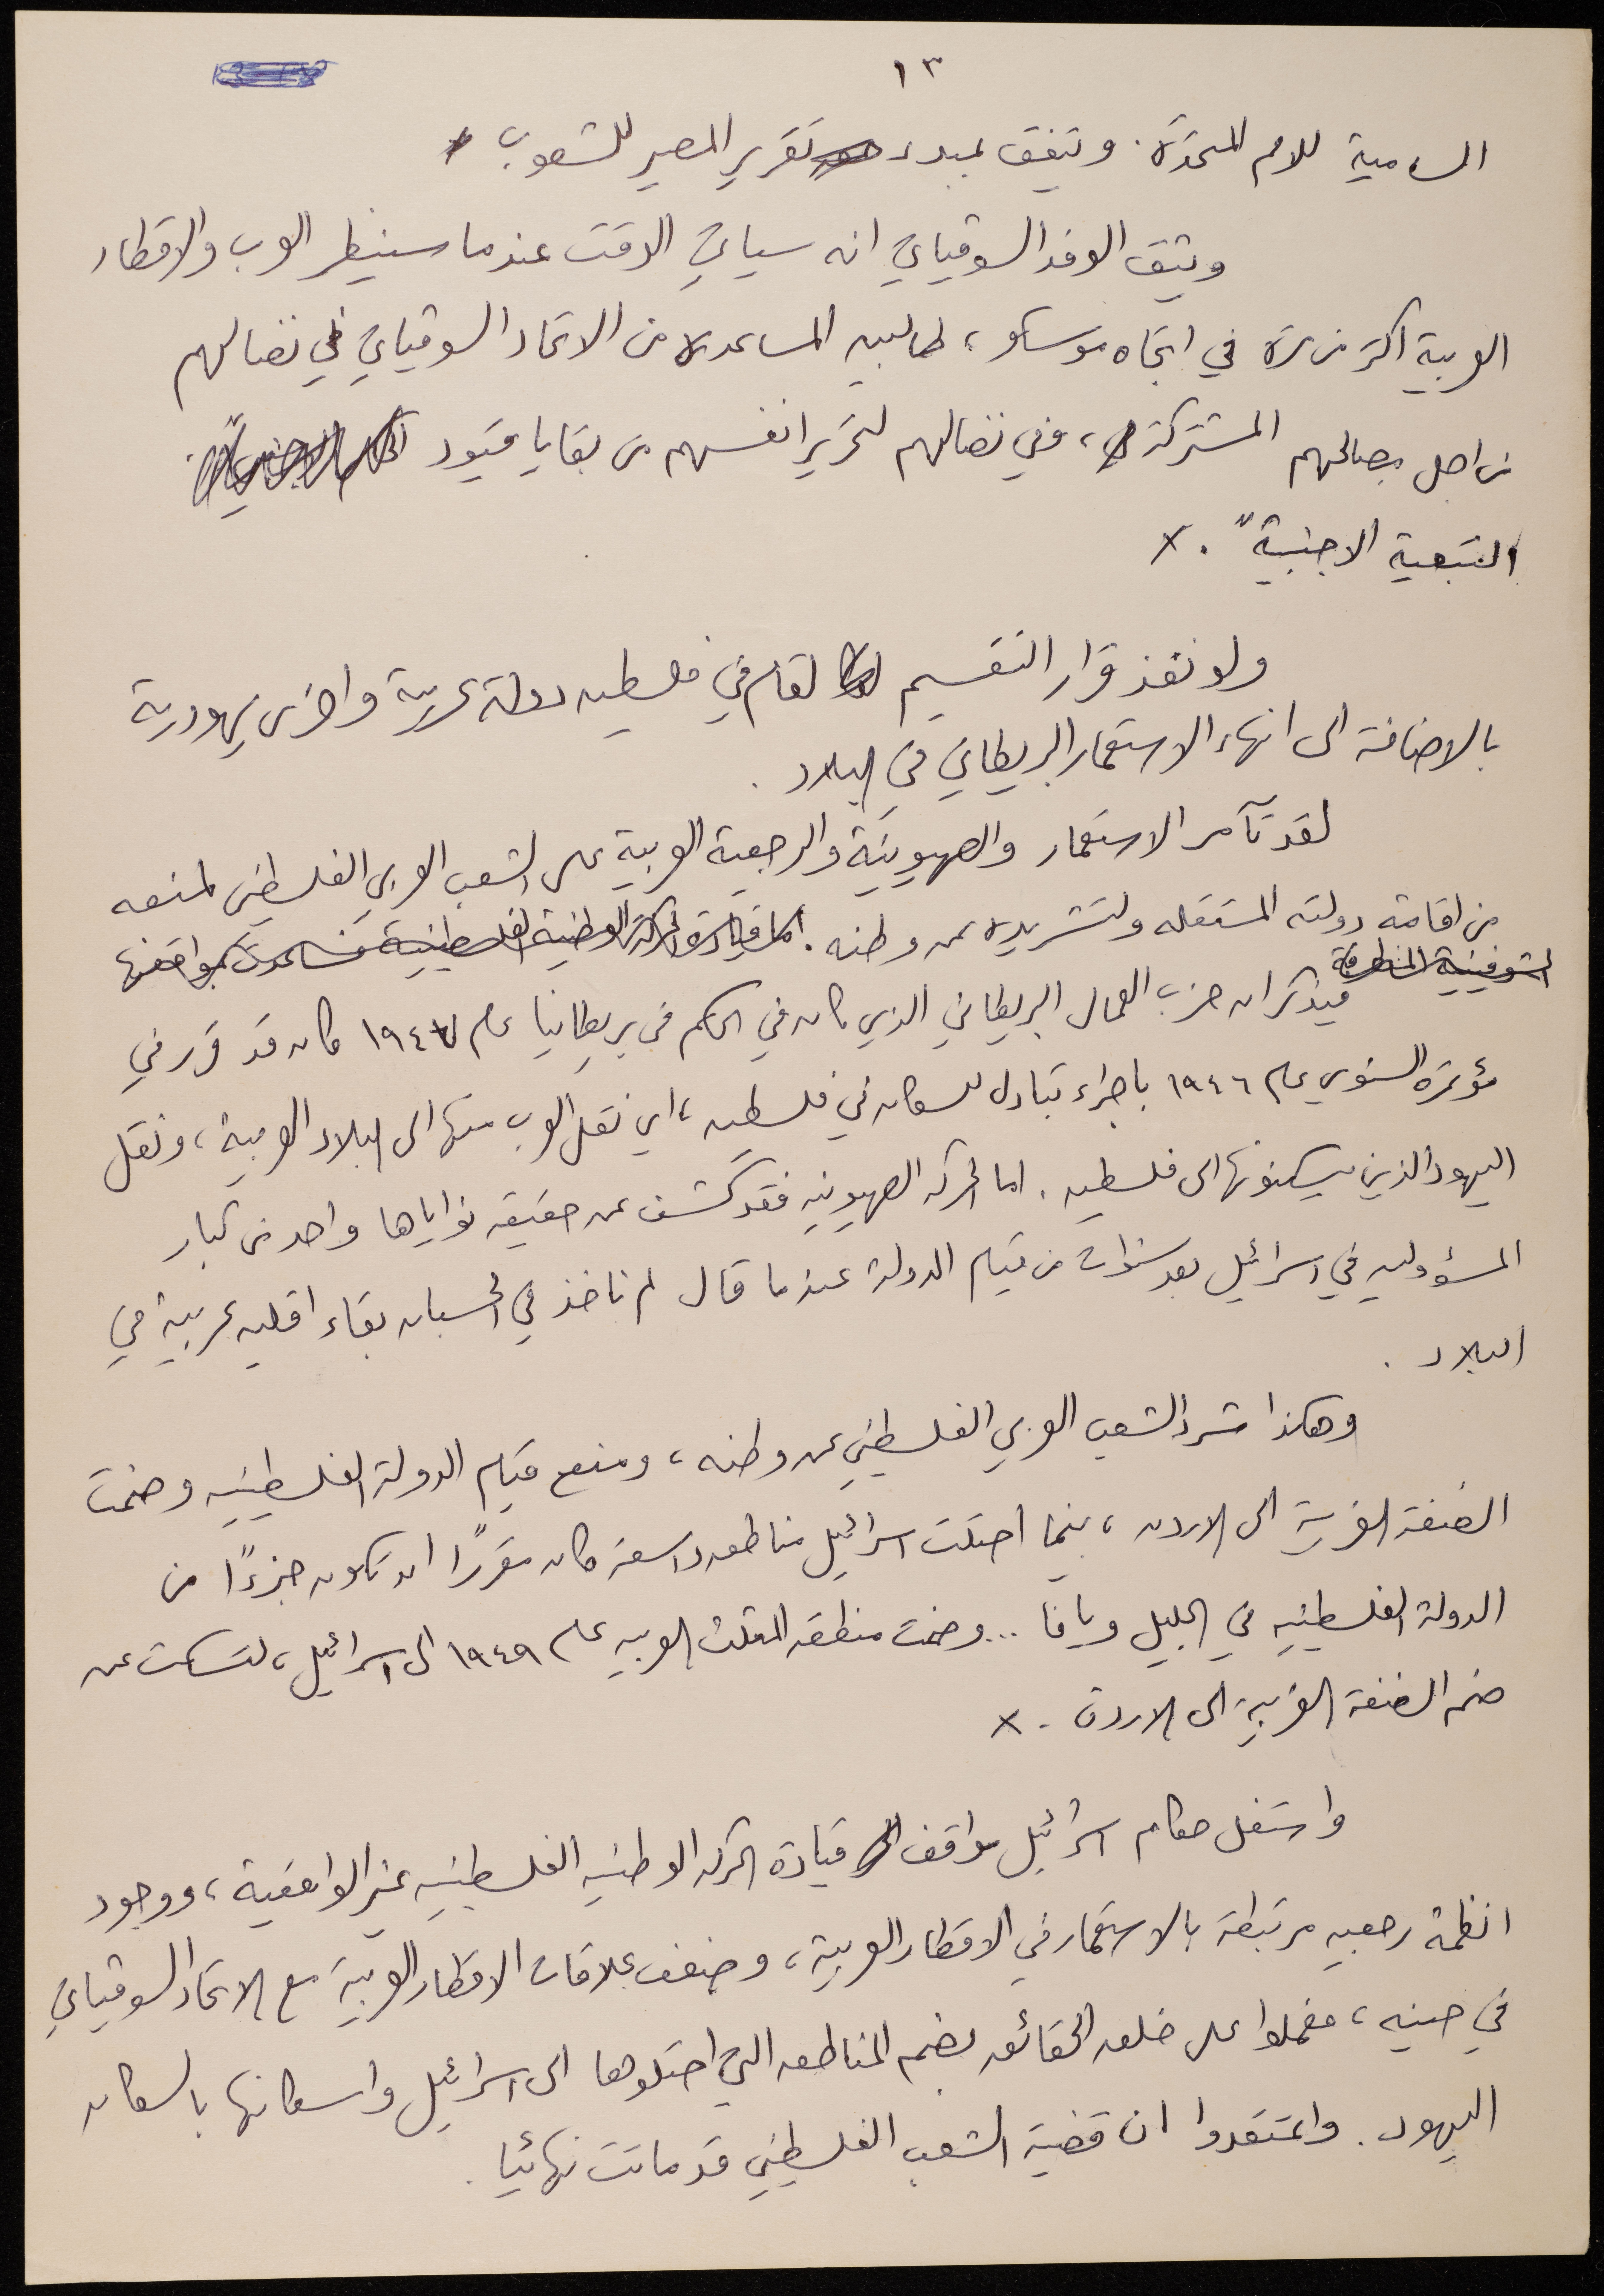 ١٣
السامية للامم المتحدة. وتتفق لمبدء تقرير المصير للشعوب.
ويثق الوفد السوفياتي انه سيأتي الوقت عندما سينظر العرب والاقطار
العربية اكثر من مرة في اتجاه موسكو، طالبين المساعدة من الاتحاد السوفياتي في نضالهم
من اجل مصالحهم المشتركة، وفي نضالهم لتحرير انفسهم من بقايا قيود
التبعية الاجنبية". x
ولو نفذ قرار التقسيم لقام في فلسطين دولة عربية واخرى يهودية
بالاضافة الى انهاء الاستعمار البريطاني في البلاد.
لقد تآمر الاستعمار والصهيونية والرجعية العربية على الشعب العربي الفلسطيني لمنعه
من اقامة دولته المستقله ولتشريده عن وطنه. اما قيادة الحركة الوطنية الفلسطينية فساعدت بمواقفها
الشوفينية المتطرفة
فيذكر ان حزب العمال البريطاني الذي كان في الحكم في بريطانيا عام ١٩٤٧ كان قد قرر في
مؤتمره السنوي عام ١٩٤٦ باجراء تبادل للسكان في فلسطين، اي نقل العرب منها الى البلاد العربية، ونقل
اليهود الذين يسكنونها الى فلسطين. اما الحركه الصهيونيه فقد كشف عن حقيقه نواياها واحد من كبار
المسؤولين في اسرائيل بعد سنوات من قيام الدولة عندما قال لم ناخذ في الحسبان بقاء اقليه عربية في
البلاد.
وهكذا شرد الشعب العربي الفلسطيني عن وطنه، ومنع قيام الدولة الفلسطينيه وضمت
الضفة الغربية الى الاردن، بينما احتلت اسرائيل مناطق واسعة كان مقررًا ان تكون جزءًا من
الدولة الفلسطينيه في الجليل ويافا... وضمت منطقه المثلث العربيه عام ١٩٤٩ الى اسرائيل، لتسكت عن
ضم الضفة الغربية الى الاردن. x
واستغل حكام اسرائيل مواقف قيادة الحركه الوطنيه الفلسطينيه غير الواقعية، ووجود
انظمة رجعيه مرتبطة بالاستعمار في الاقطار العربية، وضعف علاقات الاقطار العربية مع الاتحاد السوفياتي
في حينه، فعملوا على خلق الحقائق بضم المناطق التي احتلوها الى اسرائيل واسكانها بالسكان
اليهود. واعتقدوا ان قضية الشعب الفلسطيني قد ماتت نهائيا.